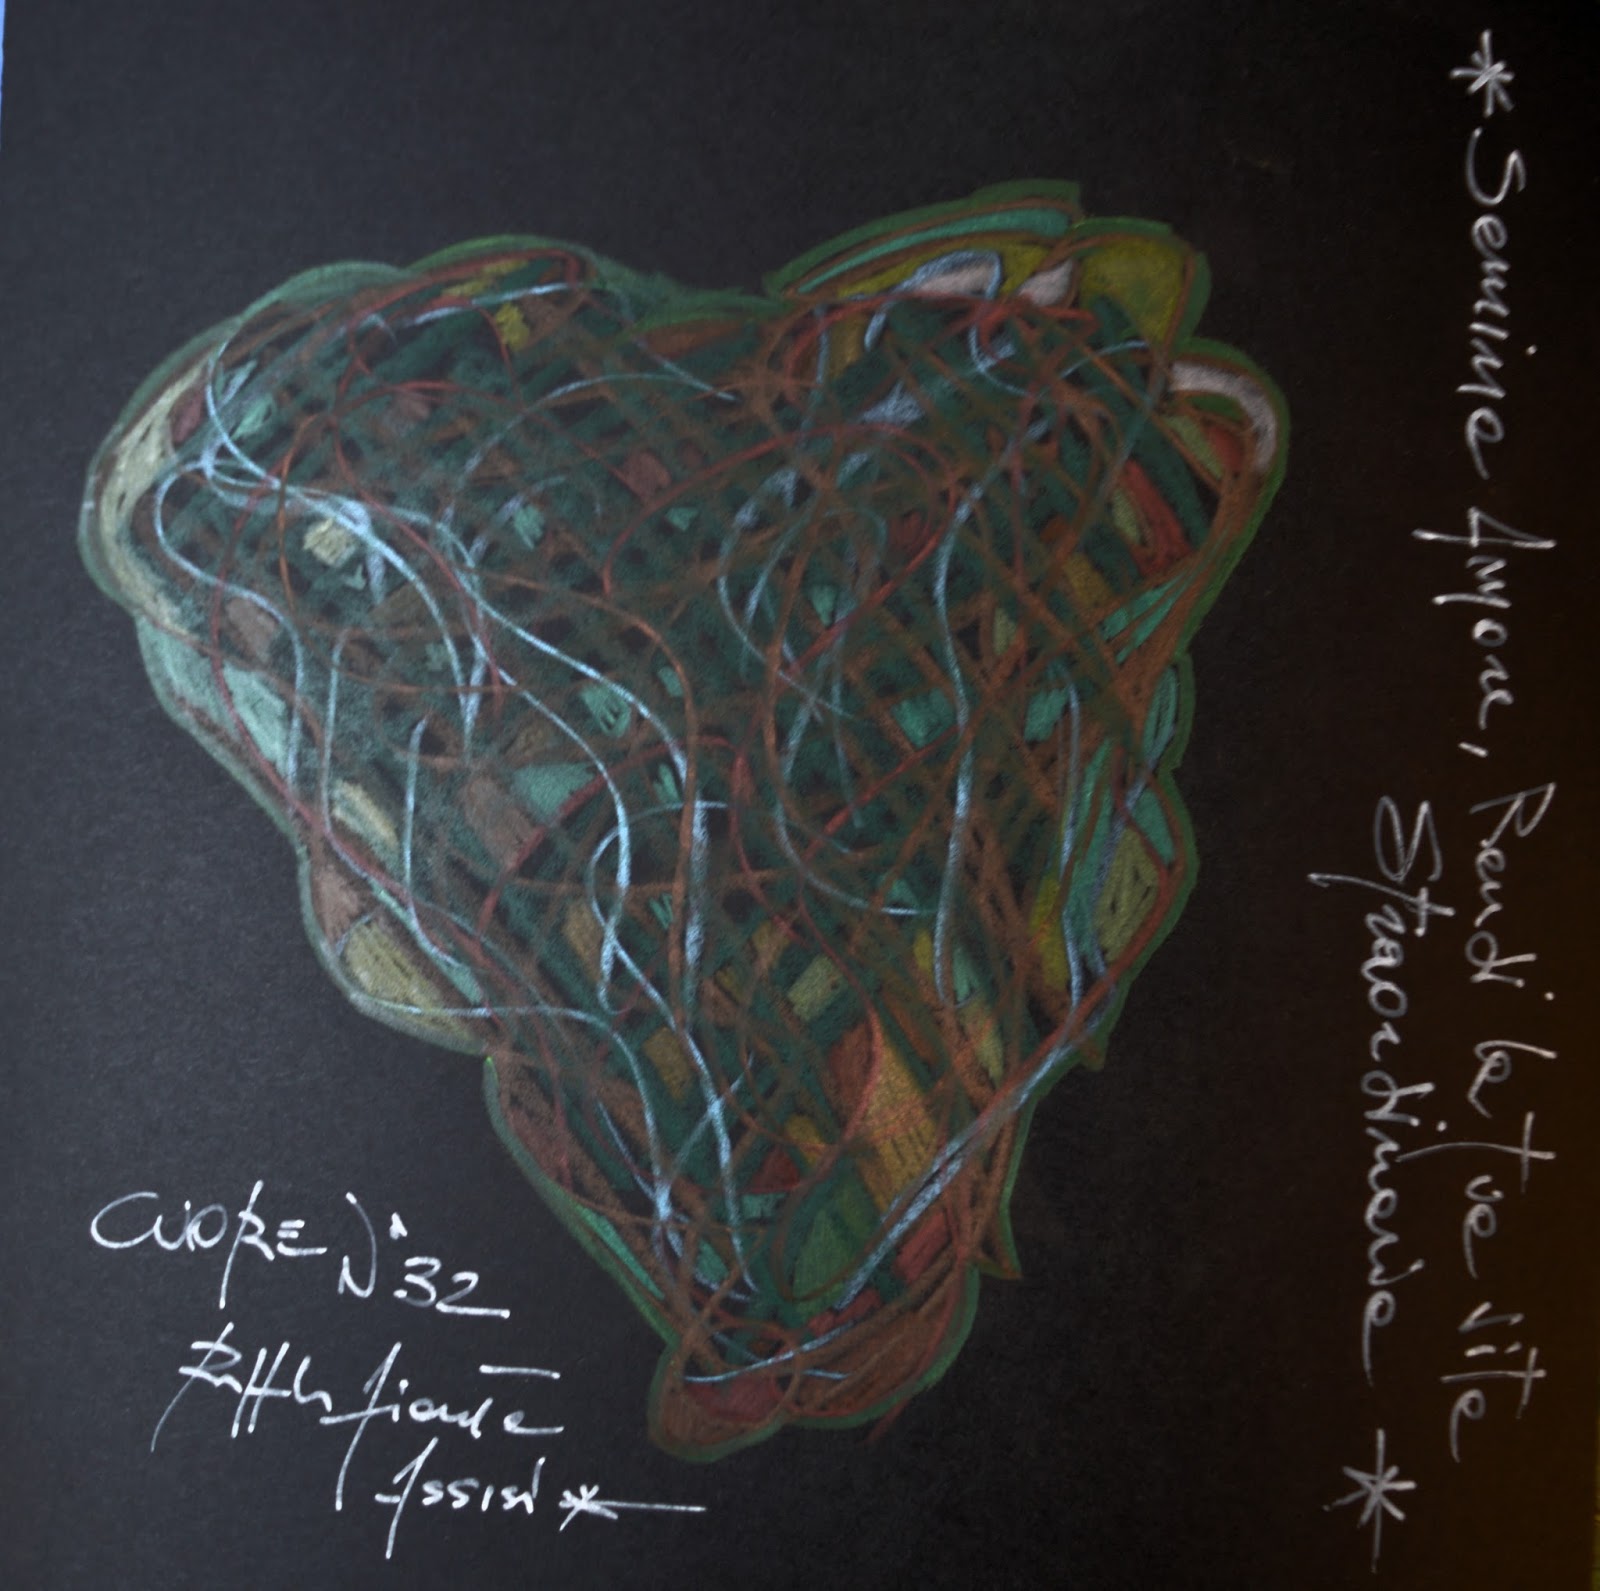 *Semina Amore, Rendi la tua vita
Straordinaria *
CUORE N° 32
Assisi *